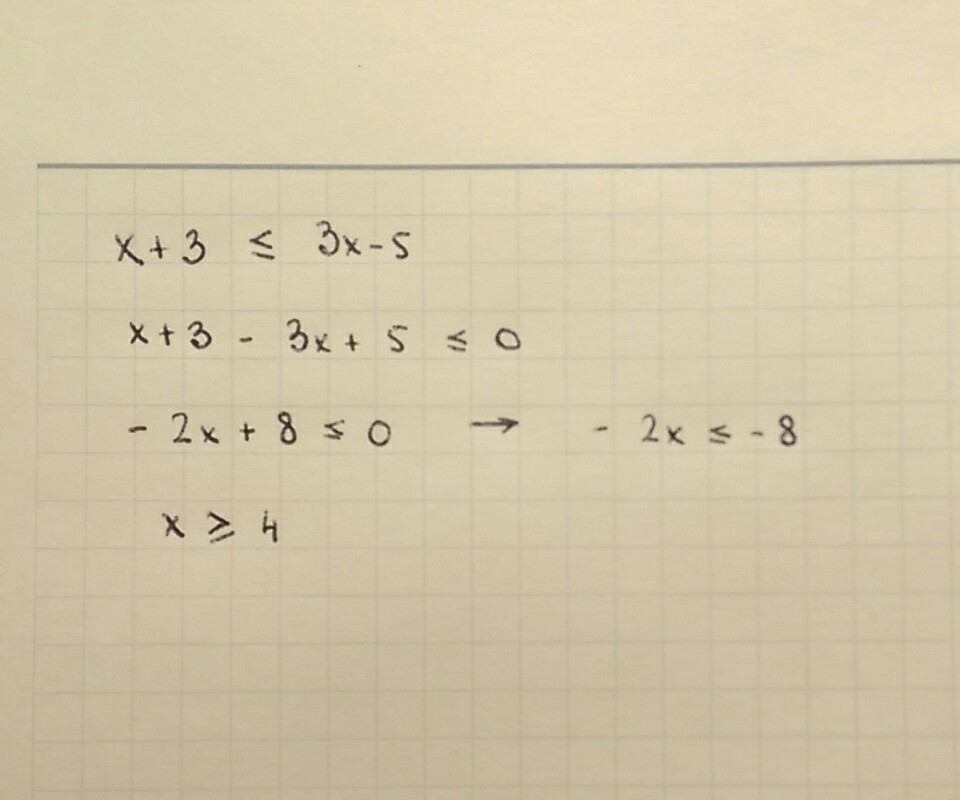 x+3 ≤ 3x-5
x+3 - 3x+ 5 ≤ 0
- 2x + 8 ≤ 0 → - 2x ≤ -8
x ≥ 4